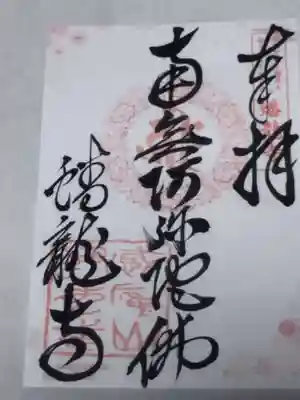 奉拝
南無阿弥陀佛
蟠龍寺